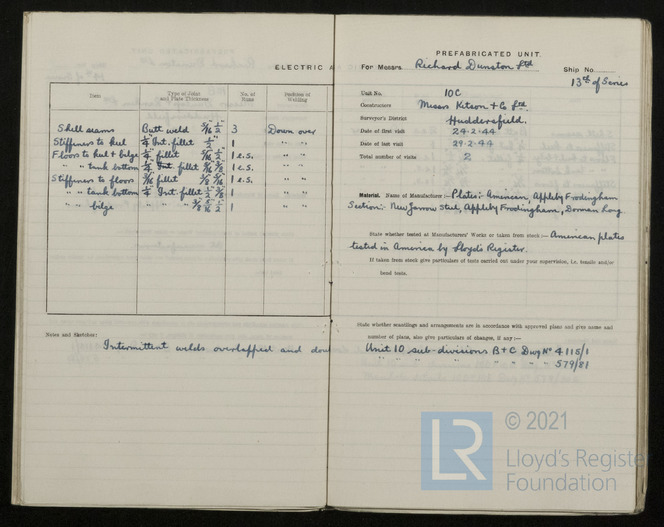 ELECTRIC A
Item
Type of Joint and Plate Thickness
No. of Runs
Position of Welding
Shell seams Butt weld 5/16" 1/2" 3 Down over
Stiffeners to keel 1/4" Int. fillet 1/2" 1 " "
Floors to keel + bilge 1/4" fillet 5/16" 1/2" 1 e.s. " "
" " tank bottom 1/4" Int. fillet 5/16" 3/8" 1 e.s. " "
Stiffeners to floors 3/16" fillet 5/16" 3/8" 1 e.s. " "
" " tank bottom 1/4" Int. fillet 1/2" 3/8" 1 " "
" " bilge " " " 3/8" 5/16" 1/2" 1 " "
Notes and Sketches:
Intermittent welds overlapped and dou
PREFABRICATED UNIT.
For Messrs. Richard Dunston Ltd Ship No.
13th of Series
Unit No. 10C
Constructors Messrs Kitson + Co Ltd.
Surveyor's District Huddersfield.
Date of first visit 24-2-44
Date of last visit 29-2-44
Total number of visits 2
Material. Name of Manufacturer:- Plates:- American, Appleby Frodingham
Section:- New Jarrow Steel, Appleby Frodingham, Dorman Long.
State whether tested at Manufacturers' Works or taken from stock:- American plates
tested in America by Lloyd's Register.
If taken from stock give particulars of tests carried out under your supervision, i.e. tensile and/or
bend tests.
State whether scantlings and arrangements are in accordance with approved plans and give name and
number of plans, also give particulars of changes, if any:-
Unit 10 sub-divisions B + C Dwg No 4115/1
" " " " " " " " 579/81
© 2021
LR
Lloyd's Register
Foundation